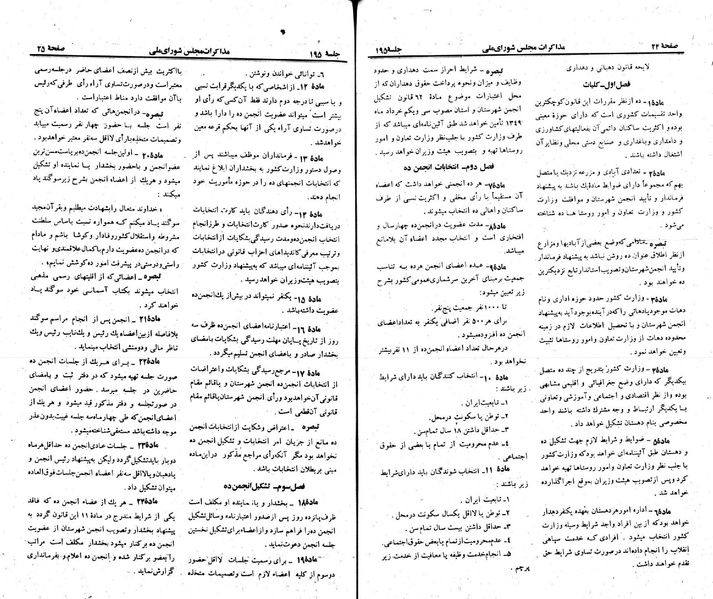 صفحهٔ ۲۴ مذاکرات مجلس شورای‌ملی جلسهٔ ۱۹۵
لایحه قانون دهبانی و دهداری
فصل‌اول- کلیات
مادهٔ۱- ده از نظر مقررات این قانون کوچکترین
واحد تقسیمات کشوری است که دارای حوزهٔ معینی
بوده و اکثریت ساکنان دائمی آن بفعالیتهای کشاورزی
و دامداری و باغداری و صنایع دستی محلی و نظایر آن
اشتغال داشته باشند.
مادهٔ۲- تعدادی آبادی و مزرعه نزدیک یا متصل
بهم که مجموعاً دارای ضوابط مادهٔ یک باشند به پیشنهاد
فرماندار و تأیید انجمن شهرستان و موافقت وزارت
کشور و وزارت تعاون و امور روستاها ده شناخته
میشود.
از نظر اطلاق عنوان ده روشن نباشد به پیشنهاد فرماندار
وتأیید انجمن‌شهرستان و تصویب استاندار تابع نزدیکترین
ده خواهند بود.
مادهٔ۳- وزارت کشور حدود حوزه اداری ونام
انجمن شهرستان و با تحصیل اطلاعات لازم در زمینه
محدوده دهات از وزارت تعاون و امور روستاها تثبیت
و تعیین خواهد نمود.
مادهٔ۴- وزارت کشور بتدریج از چند ده متصل
بیکدیگر که دارای وضع جغرافیائی و اقلیمی مشابهی
بوده و از نظر اقتصادی و اجتماعی و آموزشی و تعاونی
با یکدیگر ارتباط و وجه مشترک داشته باشند واحد
مخصوصی بنام دهستان تشکیل خواهد داد.
مادهٔ۵- ضوابط و شرایط لازم جهت تشکیل ده
و دهستان طبق آئیننامه‌ای خواهد بود که وزارت کشور
با جلب نظر وزارت تعاون و امور روستاها تهیه خواهد
کرد و پس از تصویب هیئت وزیران بموقع اجرا گذارده
خواهد شد.
مادهٔ۶- اداره امور هر دهستان بعهده یکنفر دهدار
خواهد بود که از بین افراد واجد شرایط وسیله وزارت
کشور انتخاب میشود. افرادی که خدمت سپاهی
انقلاب را انجام داده‌اند در صورت تساوی شرایط حق
تقدم خواهند داشت.
تبصره - شرایط احراز سمت دهداری و
وظایف و میزان ونحوه پرداخت حقوق دهداران که از
محل اعتبارات موضوع مادهٔ ۶۲ قانون تشکیل
انجمن شهرستان و استان مصوب سی ویکم خرداد ماه
۱۳۴۹ تأمین خواهد شد طبق آئین‌نامه‌ای میباشد که از
طرف وزارت کشور با جلب نظر وزارت تعاون و امور
روستاها تهیه و بتصویب هیئت وزیران خواهد رسید.
فصل دوم- انتخابات انجمن ده
مادهٔ۷- هر ده انجمنی خواهد داشت که اعضای
آن مستقیماً با رأی مخفی و اکثریت نسبی از طرف
ساکنان واهالی ده انتخاب میشوند.
مادهٔ۸- مدت عضویت در انجمن ده چهارسال و
افتخاری است و انتخاب مجدد اعضاء آن بلامانع
میباشد.
مادهٔ۹- عده اعضای انجمن هر ده به تناسب
جمعیت بر مبنای آخرین سرشماری عمومی کشور بشرح
زیر تعیین میشود:
تا ۱۰۰۰ نفر جمعیت پنج نفر.
برای هر ۵۰۰ نفر اضافی یکنفر به تعداد اعضای
انجمن ده افزوده میشود.
در هر حال تعداد اعضای انجمن ده از ۱۱ نفر بیشتر
نخواهد بود.
مادهٔ ۱۰- انتخاب کنندگان باید دارای شرایط
زیر باشند:
۱- تابعیت ایران.
۲- توطن یا سکونت در محل.
۳- حداقل داشتن ۱۸ سال تمام سن.
۴- عدم محرومیت از تمام یا بعضی از حقوق
اجتماعی.
مادهٔ ۱۱- انتخاب شوندگان باید دارای شرایط
زیر باشند:
۱- تابعیت ایران.
۲- توطن یا لااقل یکسال سکونت در محل.
۳- حداقل داشتن بیست سال تمام سن.
۴- عدم محرومیت از تمام یا بعض حقوق اجتماعی.
۵- انجام خدمت وظیفه یا معافیت از خدمت زیر
پرچم.
جلسهٔ ۱۹۵ مذاکرات مجلس شورای‌ملی صفحهٔ ۲۵
۶- توانائی خواندن ونوشتن.
مادهٔ ۱۲- از اشخاصی که با یکدیگر قرابت نسبی
و یا سببی تا درجه دوم دارند فقط آن کس که رأی او
بیشتر است میتواند عضویت انجمن ده را دارا باشد و
در صورت تساوی آراء یکی از آنها بحکم قرعه معین
خواهد شد.
مادهٔ ۱۳- فرمانداران موظف میباشند پس از
وصول دستور وزارت کشور به بخشداران ابلاغ نمایند
که انتخابات انجمنهای ده را در حوزه مأموریت خود
انجام دهند.
مادهٔ ۱۴- رأی دهندگان باید کارت انتخابات
دریافت دارند نحوه صدور کارت انتخابات و طرز انجام
انتخاب انجمن ده و مدت رسیدگی بشکایات از انتخابات
و ترتیب معرفی کاندیدهای احزاب قانونی در انتخابات
بموجب آئیننامه‌ای میباشد که به پیشنهاد وزارت کشور
بتصویب هیئت وزیران خواهد رسید.
مادهٔ ۱۵- یکنفر نمیتواند در بیش از یک انجمن ده
عضویت داشته باشد.
مادهٔ ۱۶- اعتبارنامه اعضای انجمن ده ظرف سه
روز از تاریخ پایان مهلت رسیدگی بشکایات به امضای
بخشدار صادر و به اعضای انجمن تسلیم میگردد.
مادهٔ ۱۷- مرجع رسیدگی بشکایات و اعتراضات
از انتخابات انجمن ده انجمن شهرستان و یا قائم مقام
قانونی آن خواهد بود ورأی انجمن شهرستان یا قائم مقام
قانونی آن قطعی است.
تبصره - اعتراض وشکایت از انتخابات انجمن
ده مانع از جریان امر انتخابات و تشکیل انجمن ده
نخواهد بود مگر آنکه رأی مراجع مذکور در این ماده
مبنی بر بطلان انتخابات باشد.
فصل سوم- تشکیل انجمن ده
مادهٔ۱۸- بخشدار و یا نماینده او مکلف است
ظرف پانزده روز پس از صدور اعتبارنامه وسائل تشکیل
انجمن ده را فراهم سازد و از اعضاء برای تشکیل نخستین
جلسه انجمن دعوت نماید.
مادهٔ۱۹- برای رسمیت جلسات لااقل حضور
دو سوم از کلیه اعضاء لازم است و تصمیمات متخذه
با اکثریت بیش از نصف اعضای حاضر در جلسه رسمی
معتبر است ودر صورت تساوی آراء رأی طرفی که رئیس
با آن موافقت دارد مناط اعتبار است.
تبصره - در انجمن‌هائی که تعداد اعضای آن پنج
نفر است جلسه با حضور چهار نفر رسمیت مییابد
و تصمیمات متخذه با رأی لااقل سه نفر معتبر خواهد بود.
مادهٔ۲۰- اولین جلسه انجمن ده بریاست مسن‌ترین
عضو انجمن و با حضور بخشدار یا نماینده او تشکیل
میشود و هر یک از اعضاء انجمن بشرح زیر سوگند یاد
میکند:
«خداوند متعال را بشهادت میطلبم و بقرآن مجید
سوگند یاد میکنم که همواره نسبت باساس سلطنت
مشروطه و استقلال کشور وفادار و کوشا باشم و مادام
که در انجمن ده عضویت دارم با کمال علاقمندی و نهایت
راستی و درستی در پیشرفت امور ده کوشش نمایم.»
تبصره - اعضائی که از اقلیتهای رسمی مذهبی
انتخاب میشوند بکتاب آسمانی خود سوگند یاد
خواهند کرد.
مادهٔ۲۱- انجمن پس از انجام مراسم سوگند
بلافاصله از بین اعضاء یک رئیس و یک نایب رئیس ویک
ناظر مالی و دو منشی انتخاب مینماید.
مادهٔ۲۲- برای هر یک از جلسات انجمن ده
صورت جلسه تهیه میشود که در دفتر ثبت و بامضای
حاضرین در جلسه میرسد. حضور و غیاب اعضاء
در صورتجلسه و دفتر مذکور قید میشود و هر یک از
اعضای انجمن که طی چهار ماه سه جلسه غیبت بدون عذر
موجه داشته باشد مستعفی شناخته میشود.
مادهٔ۲۳- جلسات عادی انجمن ده حداقل هر ماه
دو بار باید تشکیل گردد ولیکن به پیشنهاد رئیس انجمن
یا دهبان و یا لااقل سه نفر اعضاء انجمن جلسات فوق‌العاده
میتوان تشکیل داد.
مادهٔ۲۴- هر یک از اعضاء انجمن ده که فاقد
یکی از شرایط مندرج در مادهٔ ۱۱ این قانون گردد به
پیشنهاد بخشدار و تصویب انجمن شهرستان از عضویت
انجمن ده برکنار میشود بخشدار مکلف است مراتب
را بعضو برکنار شده و انجمن ده اعلام و بفرمانداری
گزارش نماید.